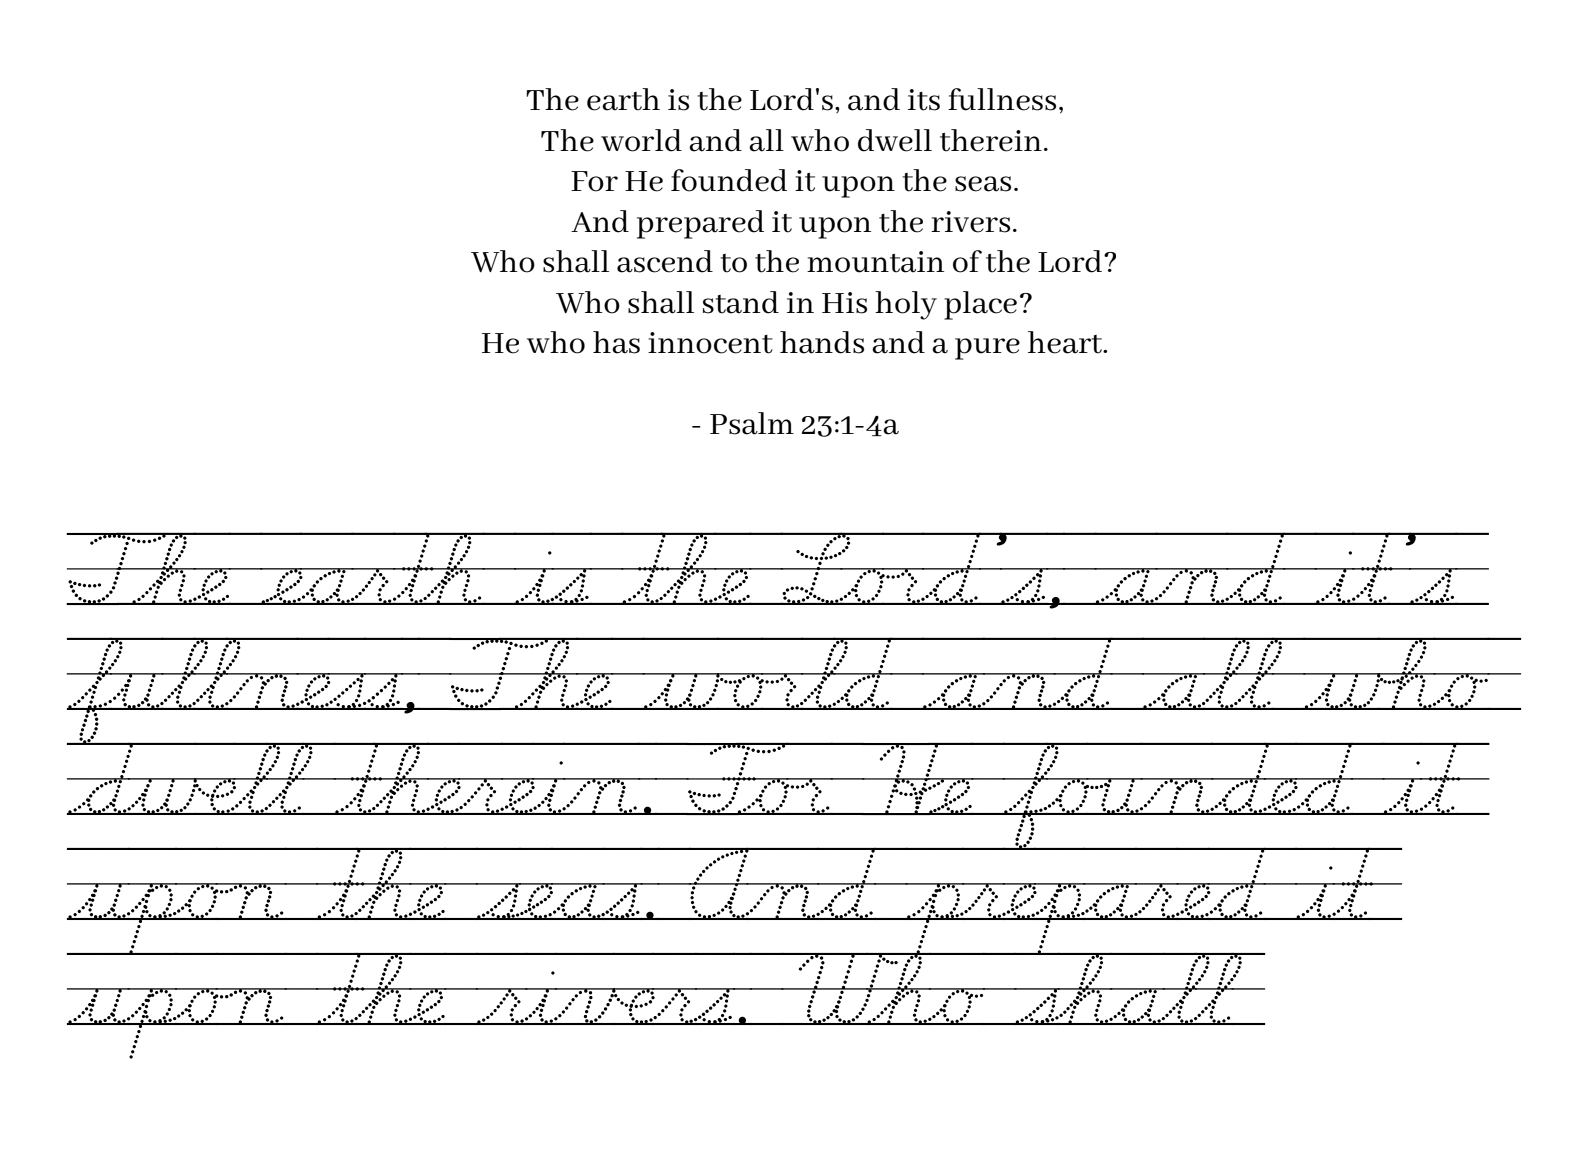 The earth is the Lord's, and its fullness,
The world and all who dwell therein.
For He founded it upon the seas.
And prepared it upon the rivers.
Who shall ascend to the mountain of the Lord?
Who shall stand in His holy place?
He who has innocent hands and a pure heart.
- Psalm 23:1-4a
The earth is the Lord's, and it's
fullness, The world and all who
dwell therein. For He founded it
upon the seas. And prepared it
upon the rivers. Who shall